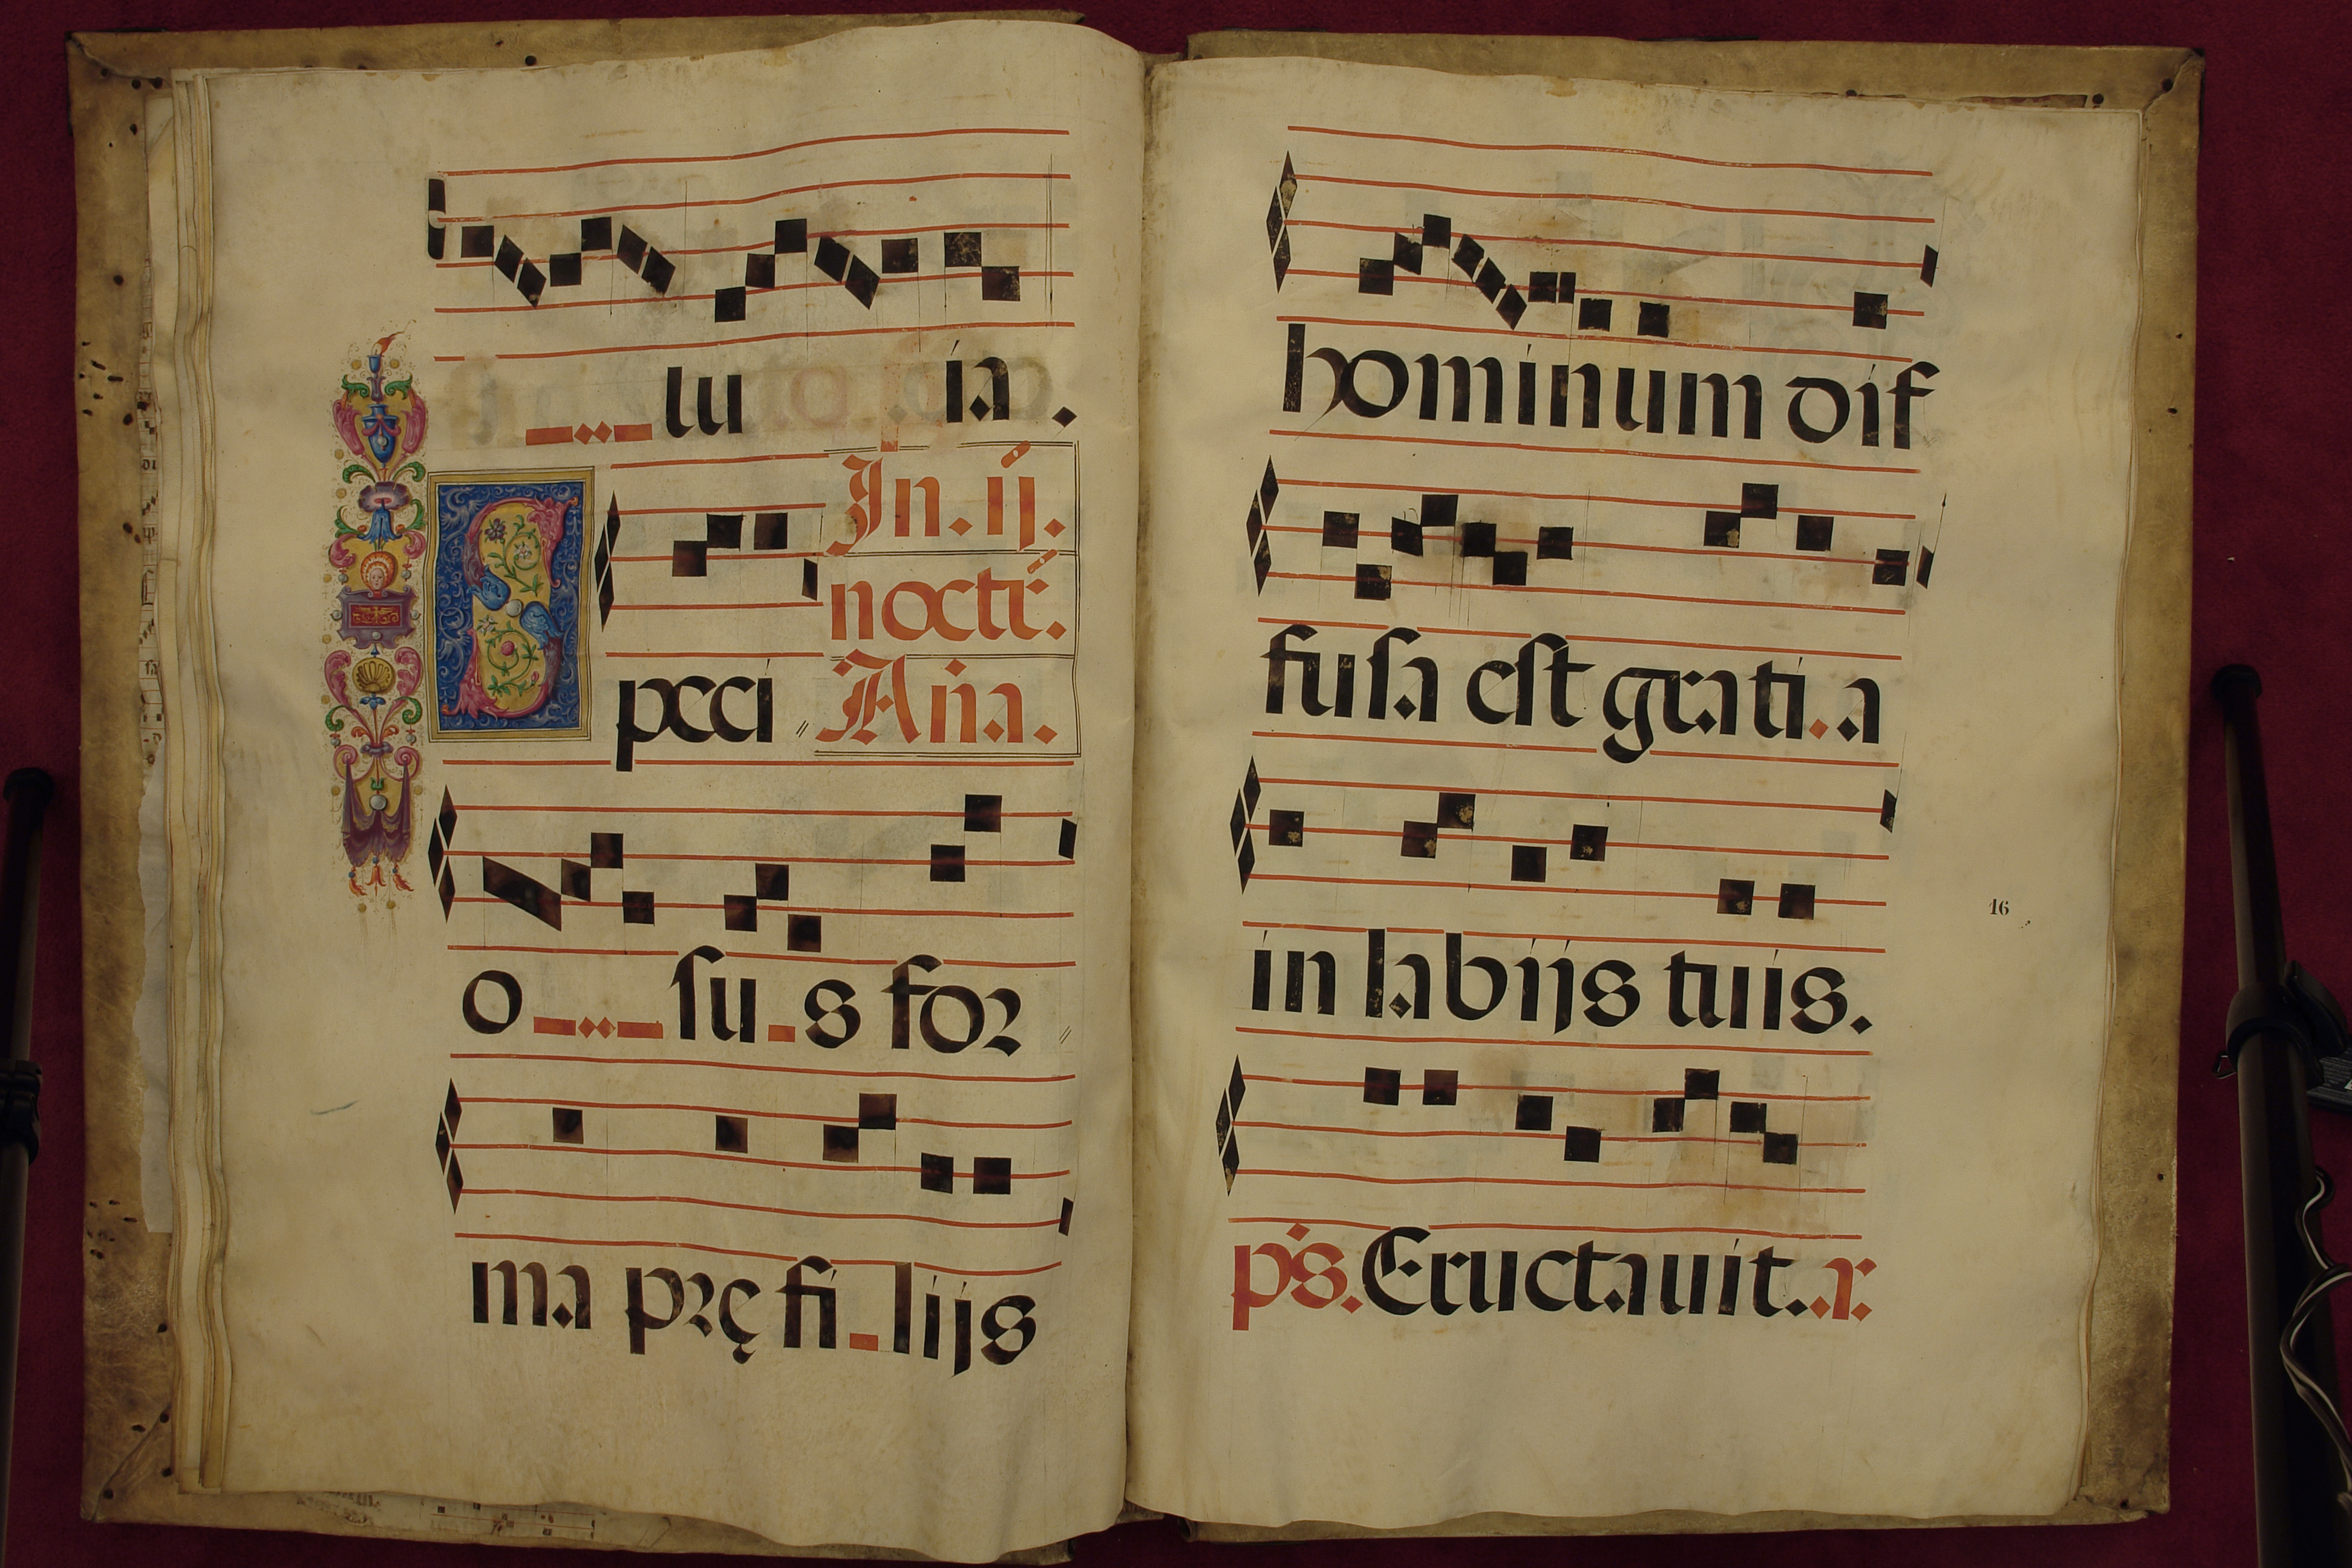 _.._lu ia.
In. ij.
noctr̄.
Speci Aña.
o_.._su_s for
ma prę fi_lijs
hominum dif
fusa est grati.a
in labijs tuis.
16
ps. Eructauit..x.